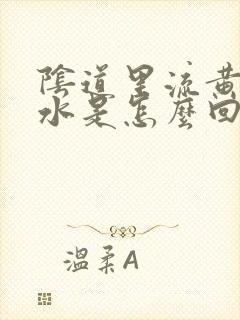 陰道里流黃
水是怎麼回
溫柔A